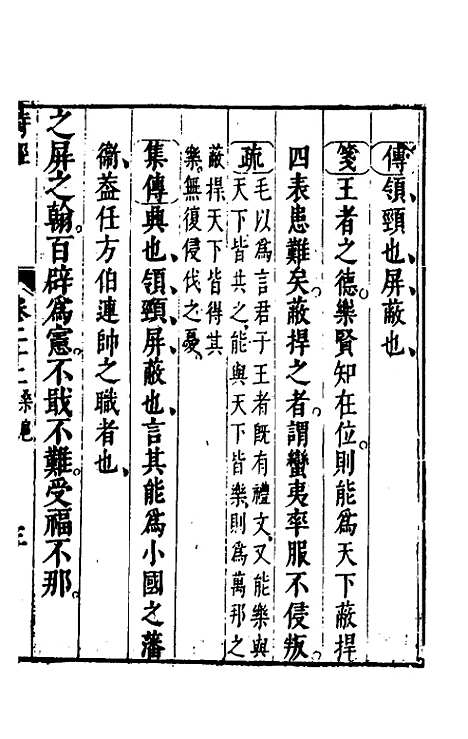 傳領頸也屏蔽也
箋王者之德樂賢知在位則能爲天下蔽捍
四表患難矣蔽捍之者謂蠻夷率服不侵叛
疏毛以爲言君子王者旣有禮文又能樂與
天下皆共之能與天下皆樂則爲萬邦之
蔽捍天下皆得其
樂無復侵伐之憂
集傳興也領頸屏蔽也言其能爲小國之藩
衞葢任方伯連帥之職者也
之屏之翰百辟爲憲不戢不難受福不那
詩經 卷二十二桑扈 三